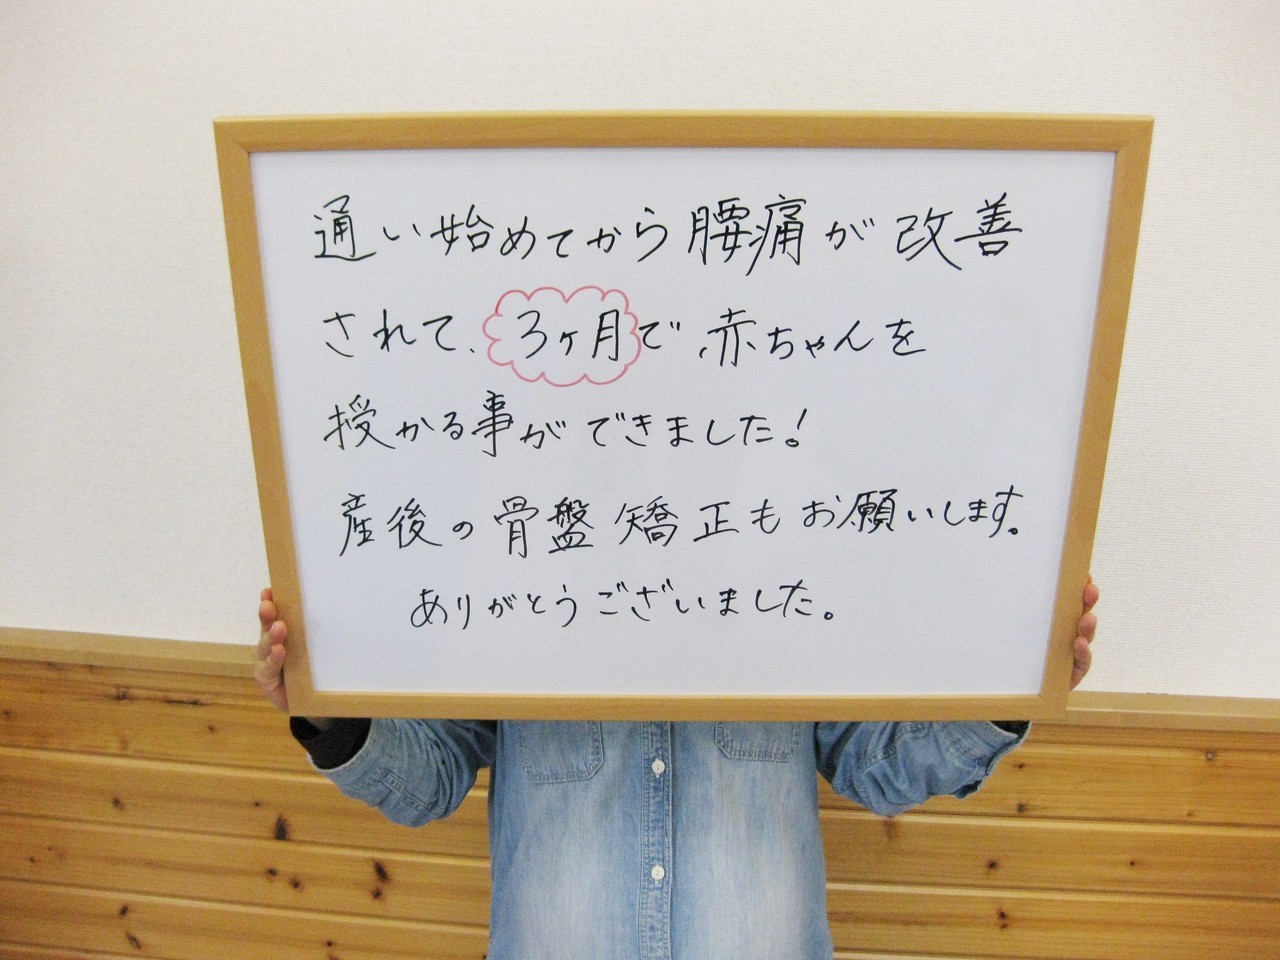 通い始めてから腰痛が改善
されて、3ヶ月で、赤ちゃんを
授かる事ができました!
産後の骨盤矯正もお願いします。
ありがとうございました。